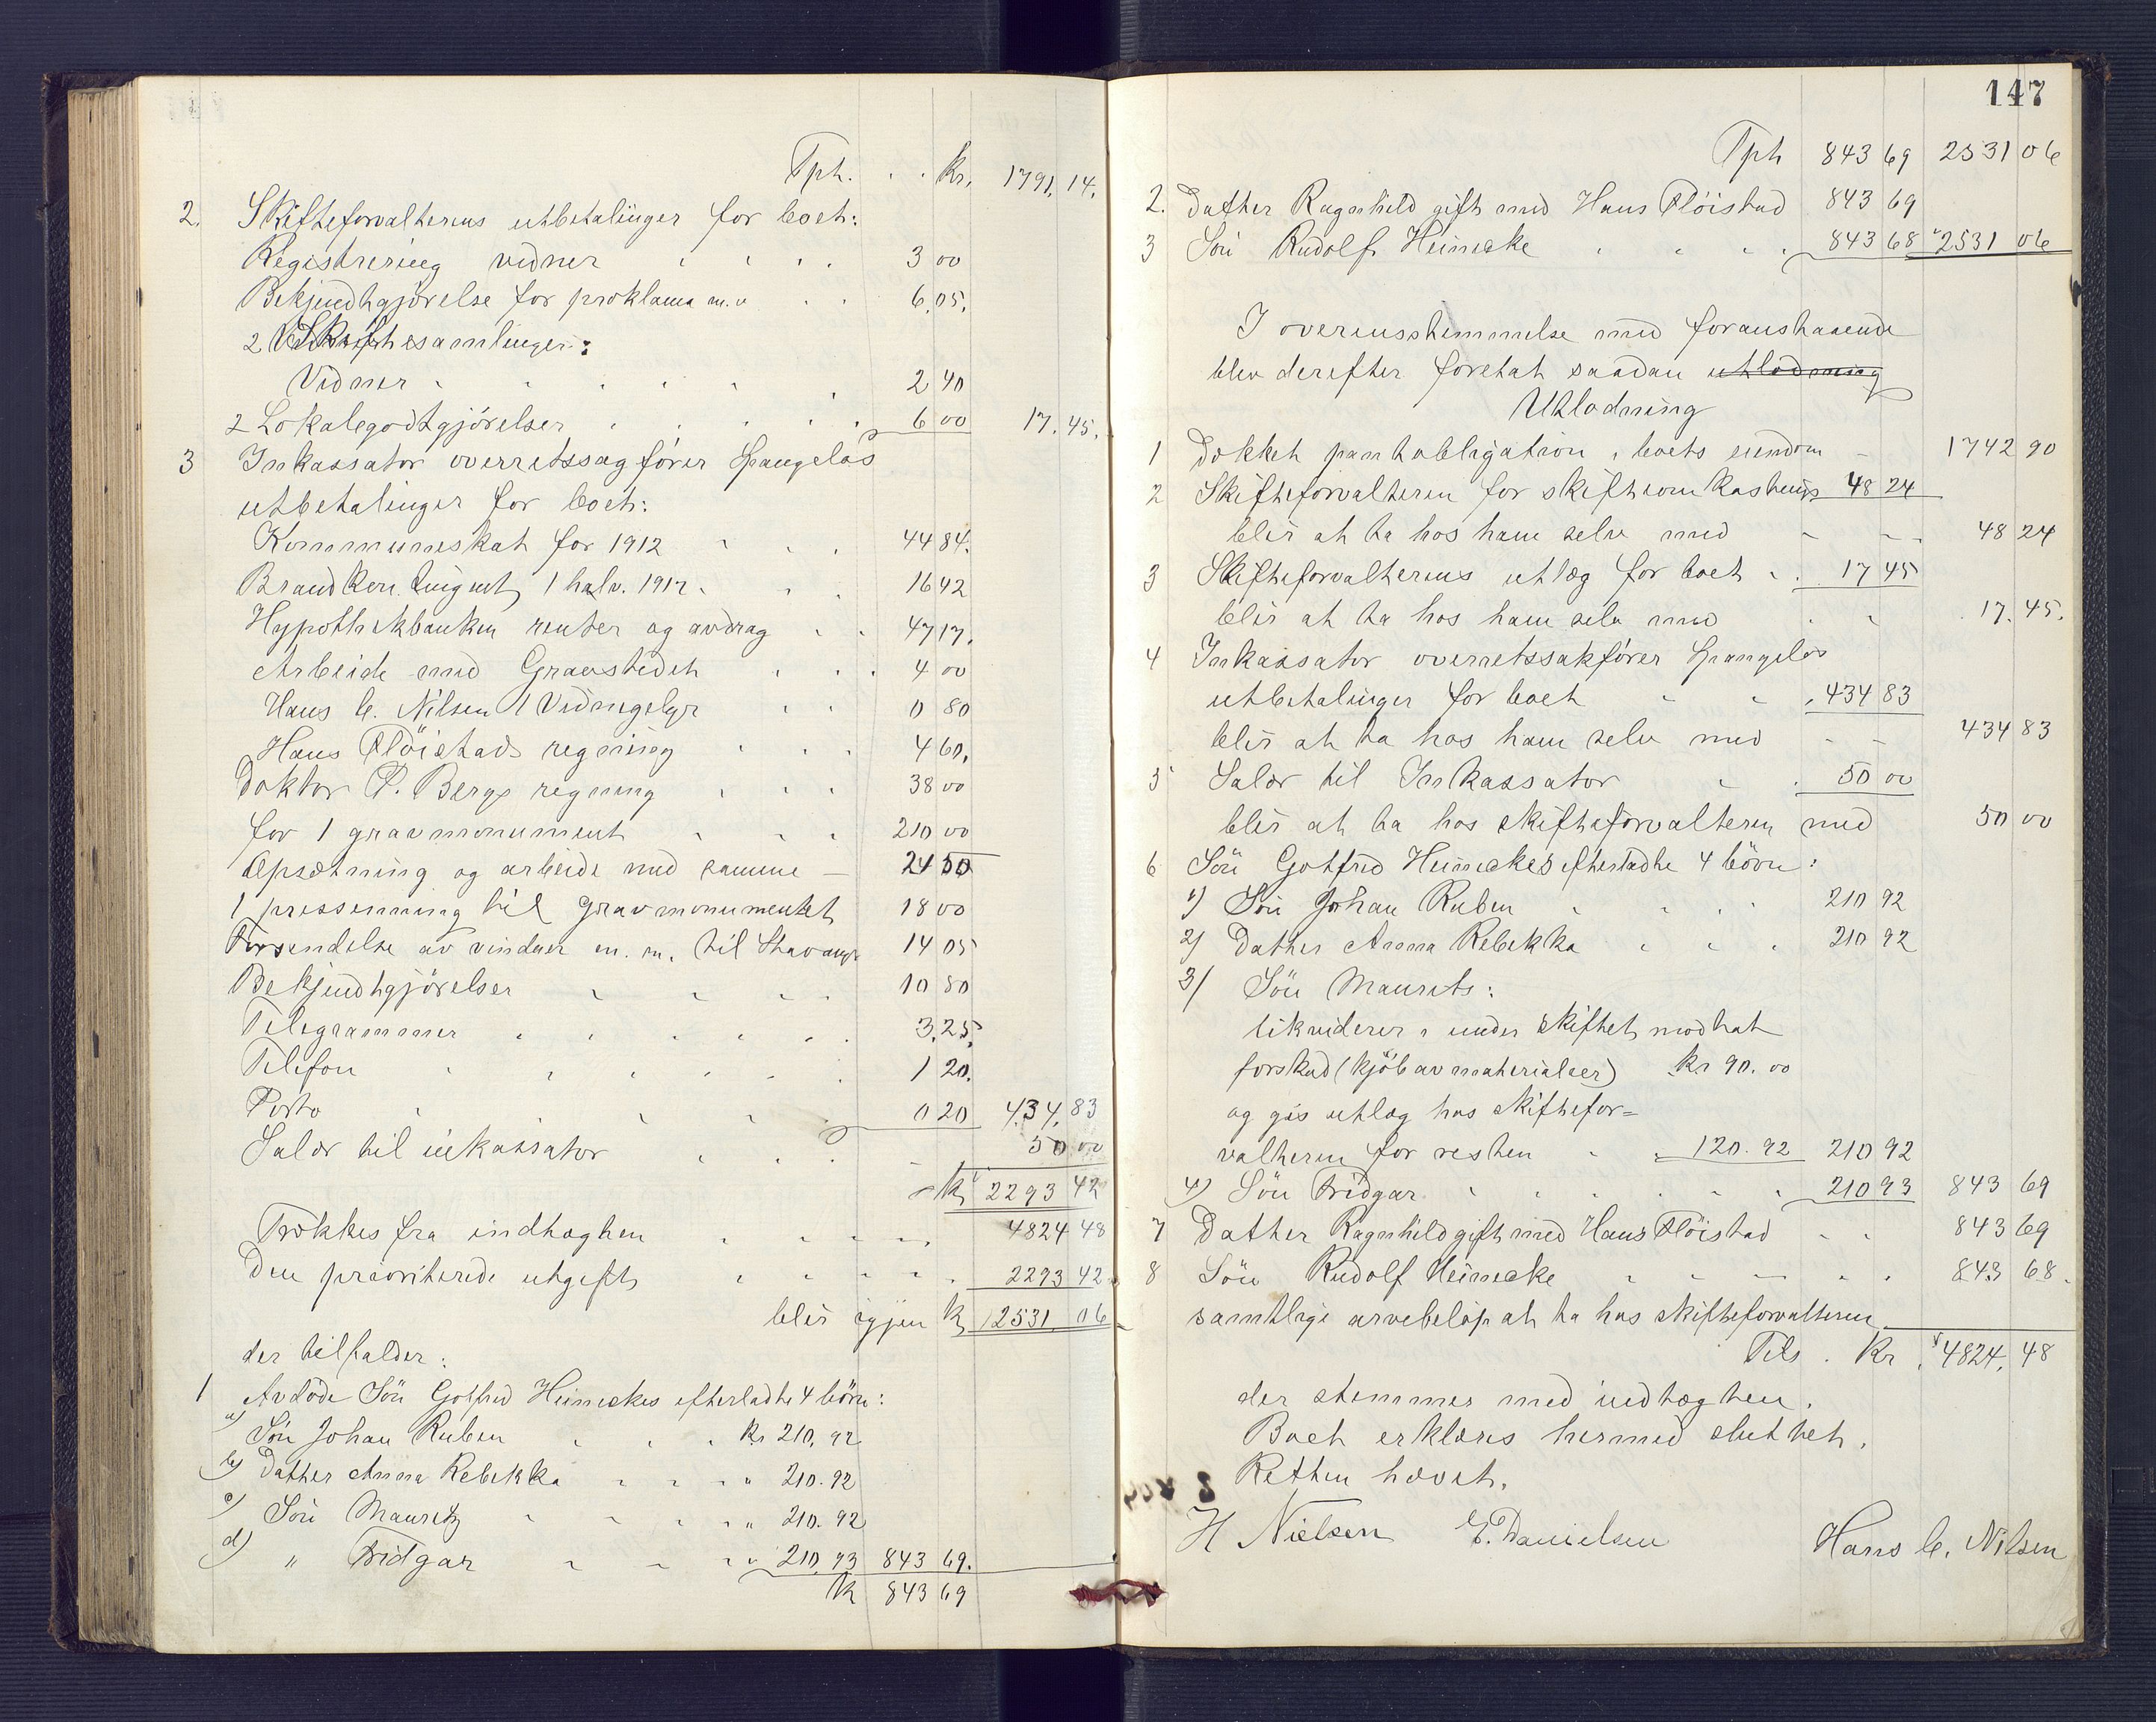 Tph. . . Kr. 1791.14.
2. Skifteforvalterens utbetalinger for boet:
Registrering vidner 3 00
Bekjendtgjörelse for proklama m.v 6.05.
2 Skiftesamlinger:
Vidner 2 40
2 Lokalegodtgjörelser 6 00 17.45.
3 Inkassator overretssagförer Spangelos
utbetalinger for boet:
Kommuneskat for 1912 44 84.
Brandkontingent, 1 halv. 1912. 16 42
Hypothekbanken renter og avdrag 47 17.
Arbeide med Gravstedet 4 00
Hans C. Nilsen 1 Vidnegebyr 0 80
Hans Flöistads regning 4 60.
Doktor P. Bergs regning 38 00
for 1 gravmonument 210 00
Opsætning og arbeide med samme — 24 50
1 pressenning til gravmonumentet 18 00
Forsendelse av vinduer m. m. til Stavanger 14 05
Bekjendtgjörelser 10 80
Telegrammer 3.25.
Telefon 1 20.
Porto 0 20 434.83
Salær til inkassator 50 00
Kr 2293 42
Trækkes fra indtægten 4824 48
Den prioriterede utgift 2293 42
blir igjen Kr 2531 06
der tilfalder:
1 Avdöde Sön Gotfred Heineckes efterladte 4 börn:
a) Sön Johan Ruben Kr 210.92
b) Datter Anna Rebekka " 210.92
c) Sön Mauritz " 210.92
d) " Fridgar " 210.93 843 69.
Kr 843 69
147
Tph 843 69 2531 06
2. Datter Ragnhild gift med Hans Flöistad 843 69
3 Sön Rudolf Heinecke 843 68 2531 06
I overensstemmelse med foranstaaende
blev derefter foretat saadan utlodning
Utlodning
1 Dækket pantobligation i boets eiendom — 1742 90
2 Skifteforvalteren for skifteomkostnings 48 24
blir at ta hos ham selv med 48 24
3 Skifteforvalterens utlæg for boet 17 45
blir at ta hos ham selv med 17.45.
4 Inkassator overretssakförer Spangelos
utbetalinger for boet 434 83
blir at ta hos ham selv med 434 83
5 Salær til Inkassator 50 00
blir at ta hos skifteforvalteren med 50 00
6 Sön Gotfred Heineckes efterladte 4 börn:
1) Sön Johan Ruben 210 92
2) Datter Anna Rebekka 210 92
3) Sön Maurits:
likviderer i under skiftet modtat
forskud (kjöb av materialier) Kr 90.00
og gis utlæg hos skiftefor=
valteren for resten 120.92 210 92
4) Sön Fridgar 210 93 843 69
7 Datter Ragnhild gift med Hans Flöistad 843 69
8 Sön Rudolf Heinecke 843 68.
samtlige arvebelöp at ta hos skifteforvalteren
Tils. Kr. 4824.48
der stemmer med indtægten.
Boet erklæres hermed sluttet.
Retten hævet.
H Nielsen E. Danielsen Hans C. Nilsen